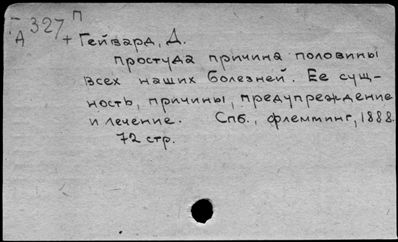 Г 327 П
Д
+ Гейвард, Д.
Простуда причина половины
всех наших болезней. Ее сущ-
ность, причины, предупреждение
и лечение. Спб., Флемминг, 1888.
72 стр.